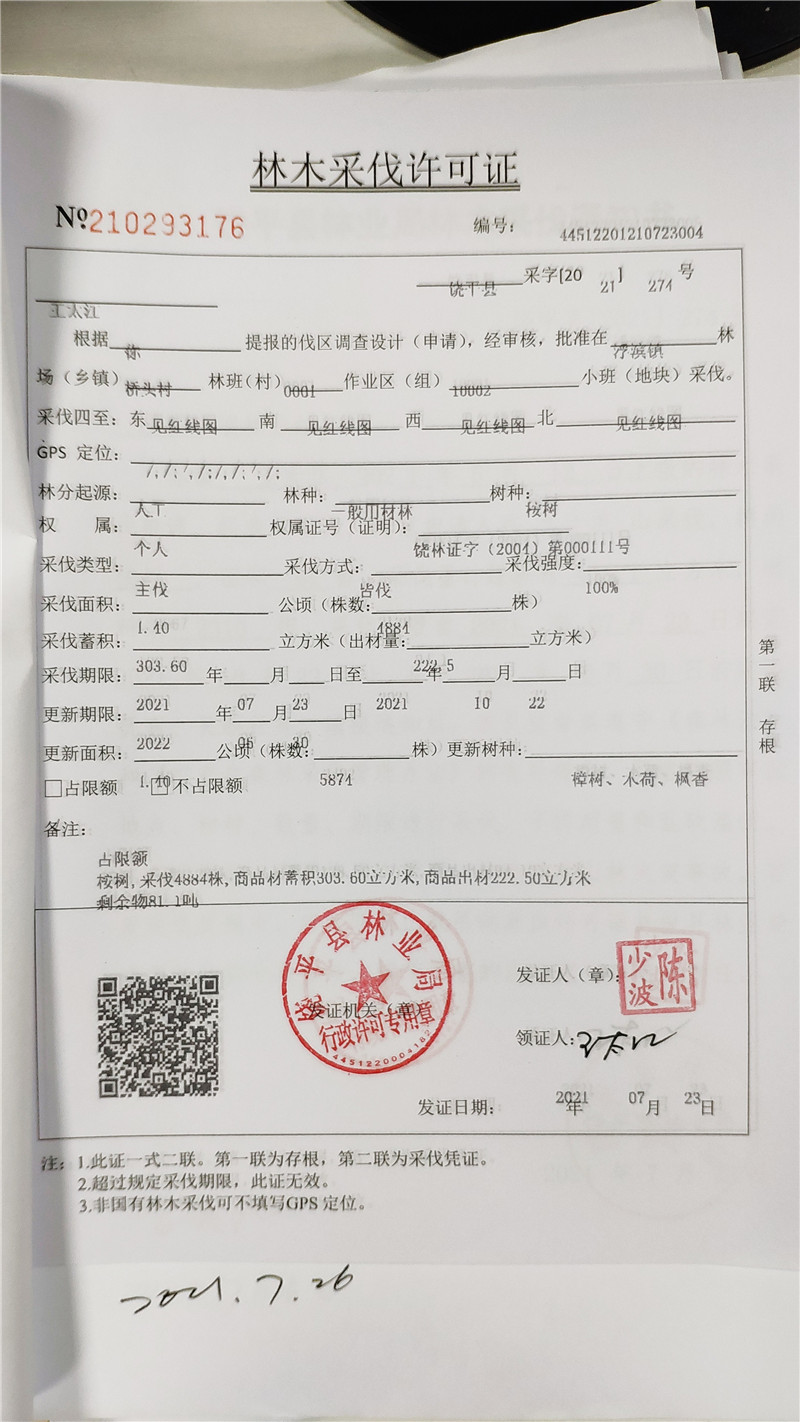 林木采伐许可证
№210293176 编号: 44512201210723004
饶平县 采字[2021] 274 号
王太江
根据 你 提报的伐区调查设计(申请),经审核,批准在 浮滨镇 林
场(乡镇) 桥头村 林班(村) 0001 作业区(组) 10002 小班(地块)采伐。
采伐四至: 东 见红线图 南 见红线图 西 见红线图 北 见红线图
GPS 定位: /,/;/,/;/,/;/,/;
林分起源: 人工 林种: 一般用材林 树种: 桉树
权 属: 个人 权属证号(证明): 饶林证字(2004)第000111号
采伐类型: 主伐 采伐方式: 皆伐 采伐强度: 100%
采伐面积: 1.40 公顷(株数: 4884 株)
采伐蓄积: 303.60 立方米(出材量: 222.5 立方米)
采伐期限: 2021 年 07 月 23 日至 2021 年 10 月 22 日
更新期限: 2022 年 06 月 30 日
更新面积: 1.40 公顷(株数: 5874 株)更新树种: 樟树、木荷、枫香
□占限额 □不占限额
备注:
占限额
桉树,采伐4884株,商品材蓄积303.60立方米,商品出材222.50立方米
剩余物81.1吨
第一联 存根
饶平县林业局
行政许可专用章
发证机关(章)
发证人(章): 陈少波
领证人: 王太江
发证日期: 2021 年 07 月 23 日
注: 1.此证一式二联。第一联为存根,第二联为采伐凭证。
2.超过规定采伐期限,此证无效。
3.非国有林木采伐可不填写GPS 定位。
2021.7.26